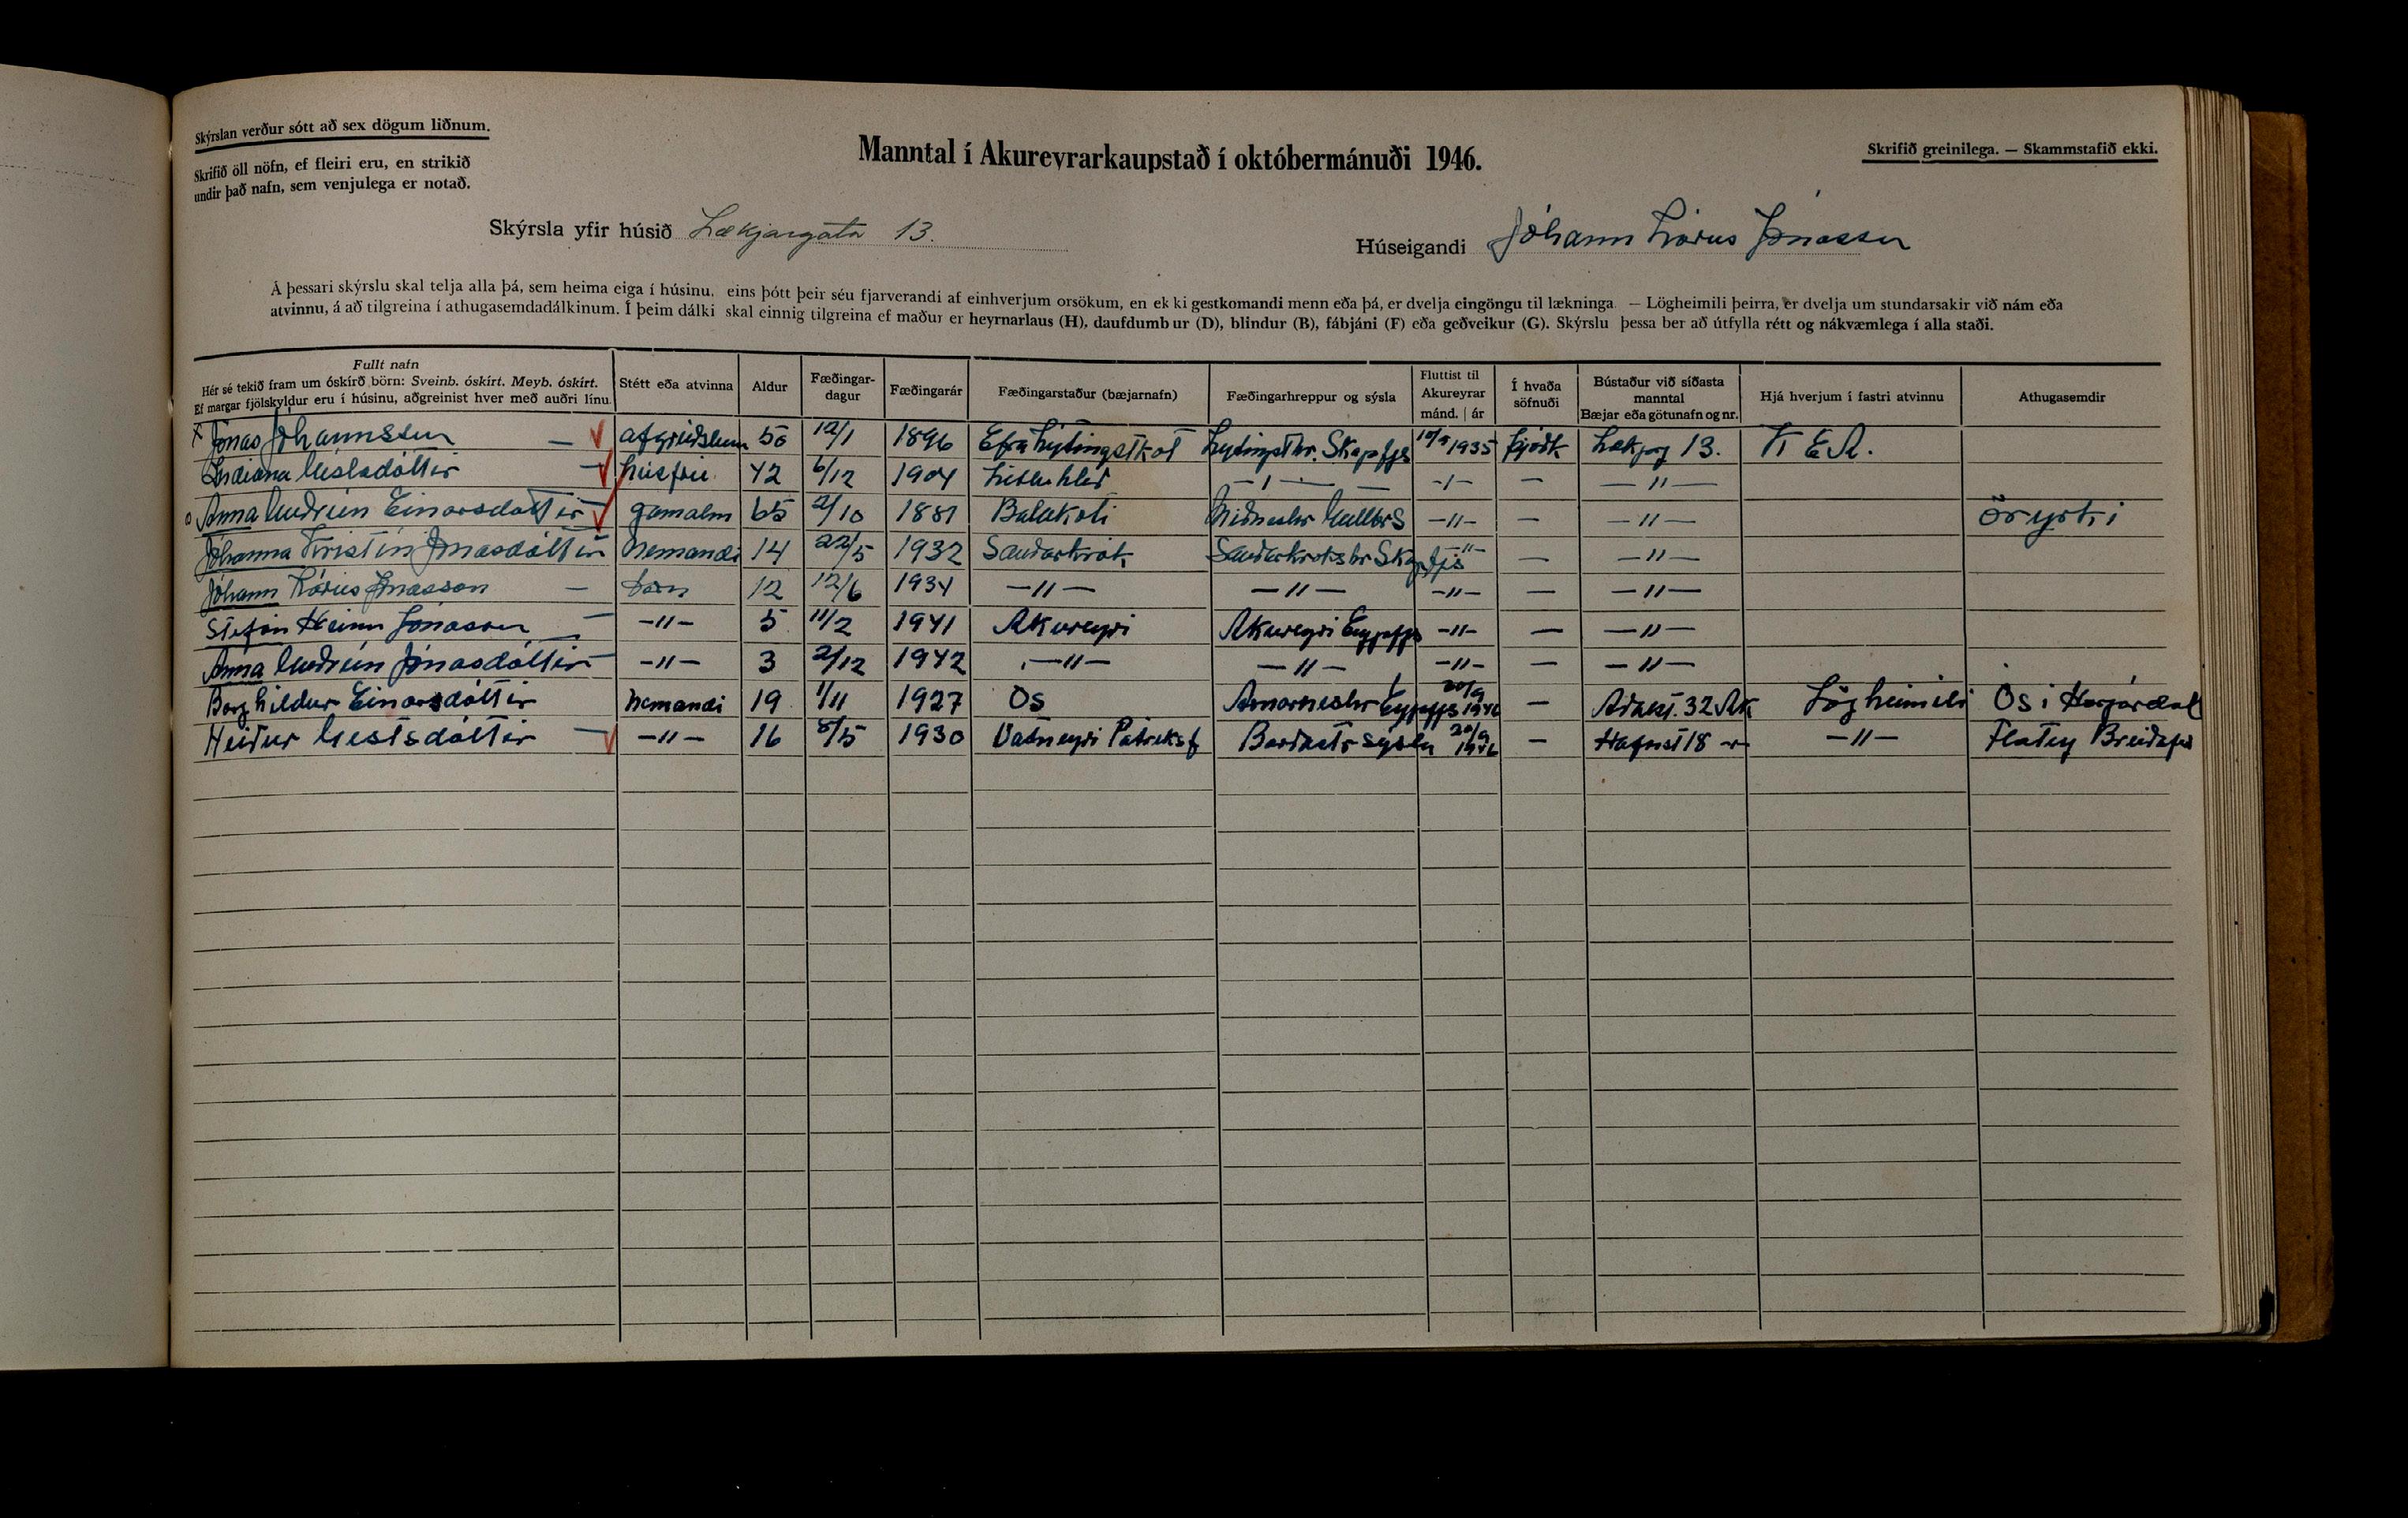 Skýrslan verður sótt að sex dögum liðnum.
Skrifið öll nöfn, ef fleiri eru, en strikið
undir það nafn, sem venjulega er notað.
Manntal í Akureyrarkaupstað í októbermánuði 1946.
Skrifið greinilega. — Skammstafið ekki.
Skýrsla yfir húsið Lækjargata 13.
Húseigandi Jóhann Lárus Jónasson
Á þessari skýrslu skal telja alla þá, sem heima eiga í húsinu, eins þótt þeir séu fjarverandi af einhverjum orsökum, en ekki gestkomandi menn eða þá, er dvelja eingöngu til lækninga. — Lögheimili þeirra, er dvelja um stundarsakir við nám eða
atvinnu, á að tilgreina í athugasemdadálkinum. Í þeim dálki skal einnig tilgreina ef maður er heyrnarlaus (H), daufdumbur (D), blindur (B), fábjáni (F) eða geðveikur (G). Skýrslu þessa ber að útfylla rétt og nákvæmlega í alla staði.
Fullt nafn
Hér sé tekið fram um óskírð börn: Sveinb. óskírt. Meyb. óskírt.
Ef margar fjölskyldur eru í húsinu, aðgreinist hver með auðri línu.
Stétt eða atvinna
Aldur
Fæðingar-
dagur
Fæðingarár
Fæðingarstaður (bæjarnafn)
Fæðingarhreppur og sýsla
Fluttist til
Akureyrar
mánd. | ár
Í hvaða
söfnuði
Bústaður við síðasta
manntal
Bæjar eða götunafn og nr.
Hjá hverjum í fastri atvinnu
Athugasemdir
x Jónas Jóhannsson — afgreiðslum 50 12/1 1896 Efra Lýtingstkot Lýtingsthr. Skagafjs 1935 þjóðk Lækjarg 13. K E A.
Indíana Gísladóttir — húsfrú 42 6/12 1904 Litluhlíð —"— —"— — —"—
o Anna Guðrún Einarsdóttir gamalm 65 2/10 1881 Balakoti Miðneshr Gullbrs —"— — —"— öryrki
Jóhanna Kristín Jónasdóttir nemandi 14 22/5 1932 Sauðárkrók Sauðárkrókshr Skagafjs —"— — —"—
Jóhann Lárus Jónasson — barn 12 12/6 1934 —"— —"— —"— — —"—
Stefán Heinn Jónasson — —"— 5 11/2 1941 Akureyri Akureyri Eyjafjs —"— — —"—
Anna Guðrún Jónasdóttir —"— 3 2/12 1942 —"— —"— —"— — —"—
Borghildur Einarsdóttir nemandi 19 1/11 1927 Ós Arnarneshr Eyjafjs 20/9 1946 — Aðalst. 32 Ak Lögheimili Ós í Hörgárdal
Heiður Gestsdóttir — —"— 16 8/5 1930 Vatneyri Patreksf Barðastr sýslu 20/9 1946 — Hafnst 18 —"— —"— Flatey Breiðafj